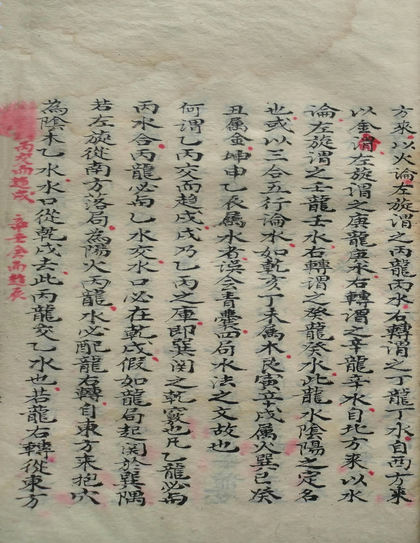 方來以火論左旋謂之丙龍丙水右轉謂之丁龍丁水自西方來
以金謂左旋謂之庚龍庚水右轉謂之辛龍辛水自北方來以水
論左旋謂之壬龍壬水右轉謂之癸龍癸水此龍水陰陽之定名
也或以三合五行論水如乾亥丁未屬木艮寅辛戌屬火巽巳癸
丑屬金坤申乙辰屬水者誤会青囊四局水法之文故也
何謂乙丙交而趨戌戌乃乙丙之庫即巽関之乾竅也凡乙龍必
丙水合丙龍必與乙水交水口必在乾戌假如龍局起関於巽隅
若左旋從南方落局為陽火丙龍水必配龍右轉自東方來抱穴
為陰木乙水水口從乾戌去此丙龍交乙水也若龍右轉從東方
乙丙交而趨戌
辛壬会而聚辰